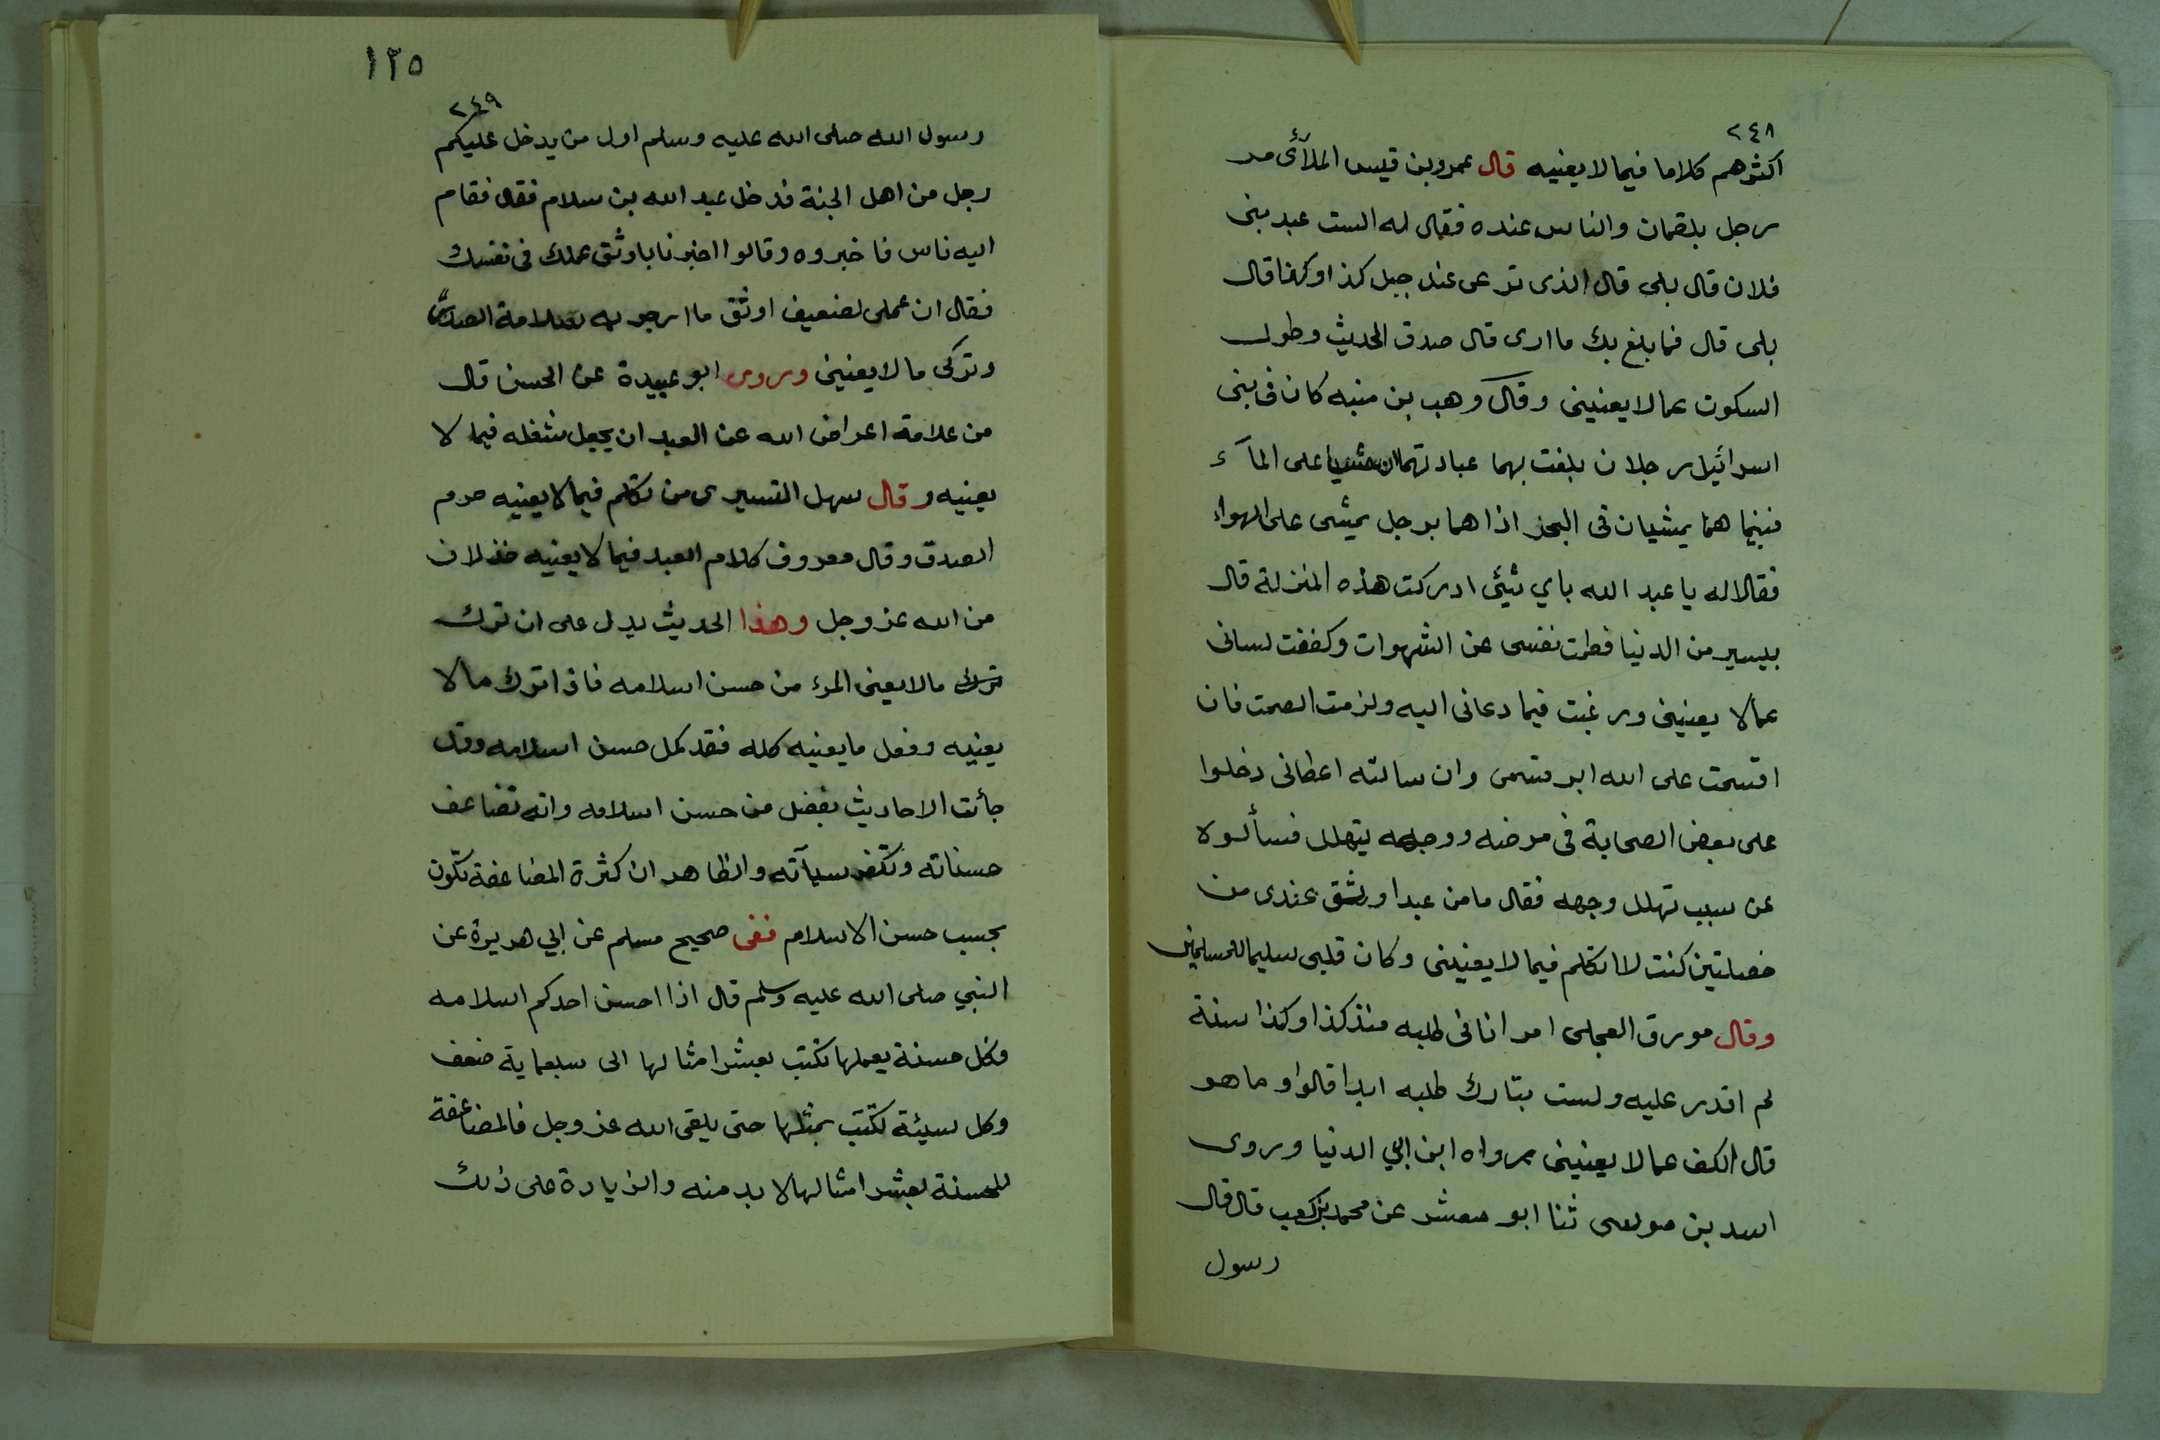 ٢٤٨
اكثرهم كلاما فيما لا يعنيه قال عمرو بن قيس الملآئى مر
رجل بلقمان والناس عنده فقال له الست عبد بنى
فلان قال بلى قال الذى ترعى عند جبل كذا وكذا قال
بلى قال فما بلغ بك ما ارى قال صدق الحديث وطول
السكوت عما لا يعنينى وقال وهب بن منبه كان فى بنى
اسرائيل رجلان بلغت بهما عبادتهما ان مشيا على المآء
فبينما هما يمشيان فى البحر اذا هما برجل يمشى على الهواء
فقالا له يا عبد الله باي شئى ادركت هذه المنزلة قال
بيسير من الدنيا فطمت نفسى عن الشهوات وكففت لسانى
عما لا يعنينى ورغبت فيما دعانى اليه ولزمت الصمت فان
اقسمت على الله ابر قسمى وان سالته اعطانى دخلوا
على بعض الصحابة فى مرضه ووجهه يتهلل فسألوه
عن سبب تهلل وجهه فقال ما من عبد اوثق عندى من
خصلتين كنت لا اتكلم فيما لا يعنينى وكان قلبى سليما للمسلمين
وقال مورق العجلى امر انا فى طلبه منذ كذا وكذا سنة
لم اقدر عليه ولست بتارك طلبه ابدا قالوا وما هو
قال الكف عما لا يعنينى رواه ابن ابي الدنيا وروى
اسد بن موسى ثنا ابو معشر عن محمد بن كعب قال قال
رسول
١٢٥
٢٤٩
رسول الله صلى الله عليه وسلم اول من يدخل عليكم
رجل من اهل الجنة فدخل عبد الله بن سلام فقال فقام
اليه ناس فاخبروه وقالوا اخبرنا باوثق عملك فى نفسك
فقال ان عملى لضعيف اوثق ما ارجو به سلامة الصدر
وتركى ما لا يعنينى وروى ابو عبيدة عن الحسن قال
من علامة اعراض الله عن العبد ان يجعل شغله فيما لا
يعنيه وقال سهل التسيرى من تكلم فيما لا يعنيه حرم
الصدق وقال معروف كلام العبد فيما لا يعنيه خذلان
من الله عز وجل وهذا الحديث يدل على ان ترك
ترك ما لا يعنى المرء من حسن اسلامه فاذا ترك ما لا
يعنيه وفعل ما يعنيه كله فقد كمل حسن اسلامه وقد
جأت الاحاديث بفضل من حسن اسلامه وانه تضاعف
حسناته وتكفر سيآته والظاهر ان كثرة المضاعفة تكون
بحسب حسن الاسلام ففى صحيح مسلم عن ابي هريرة عن
النبي صلى الله عليه وسلم قال اذا احسن احدكم اسلامه
فكل حسنة يعملها تكتب بعشر امثالها الى سبعماية ضعف
وكل سيئة تكتب بمثلها حتى يلقى الله عز وجل فالمضاعفة
للحسنة بعشر امثالها لا بد منه والزيادة على ذلك